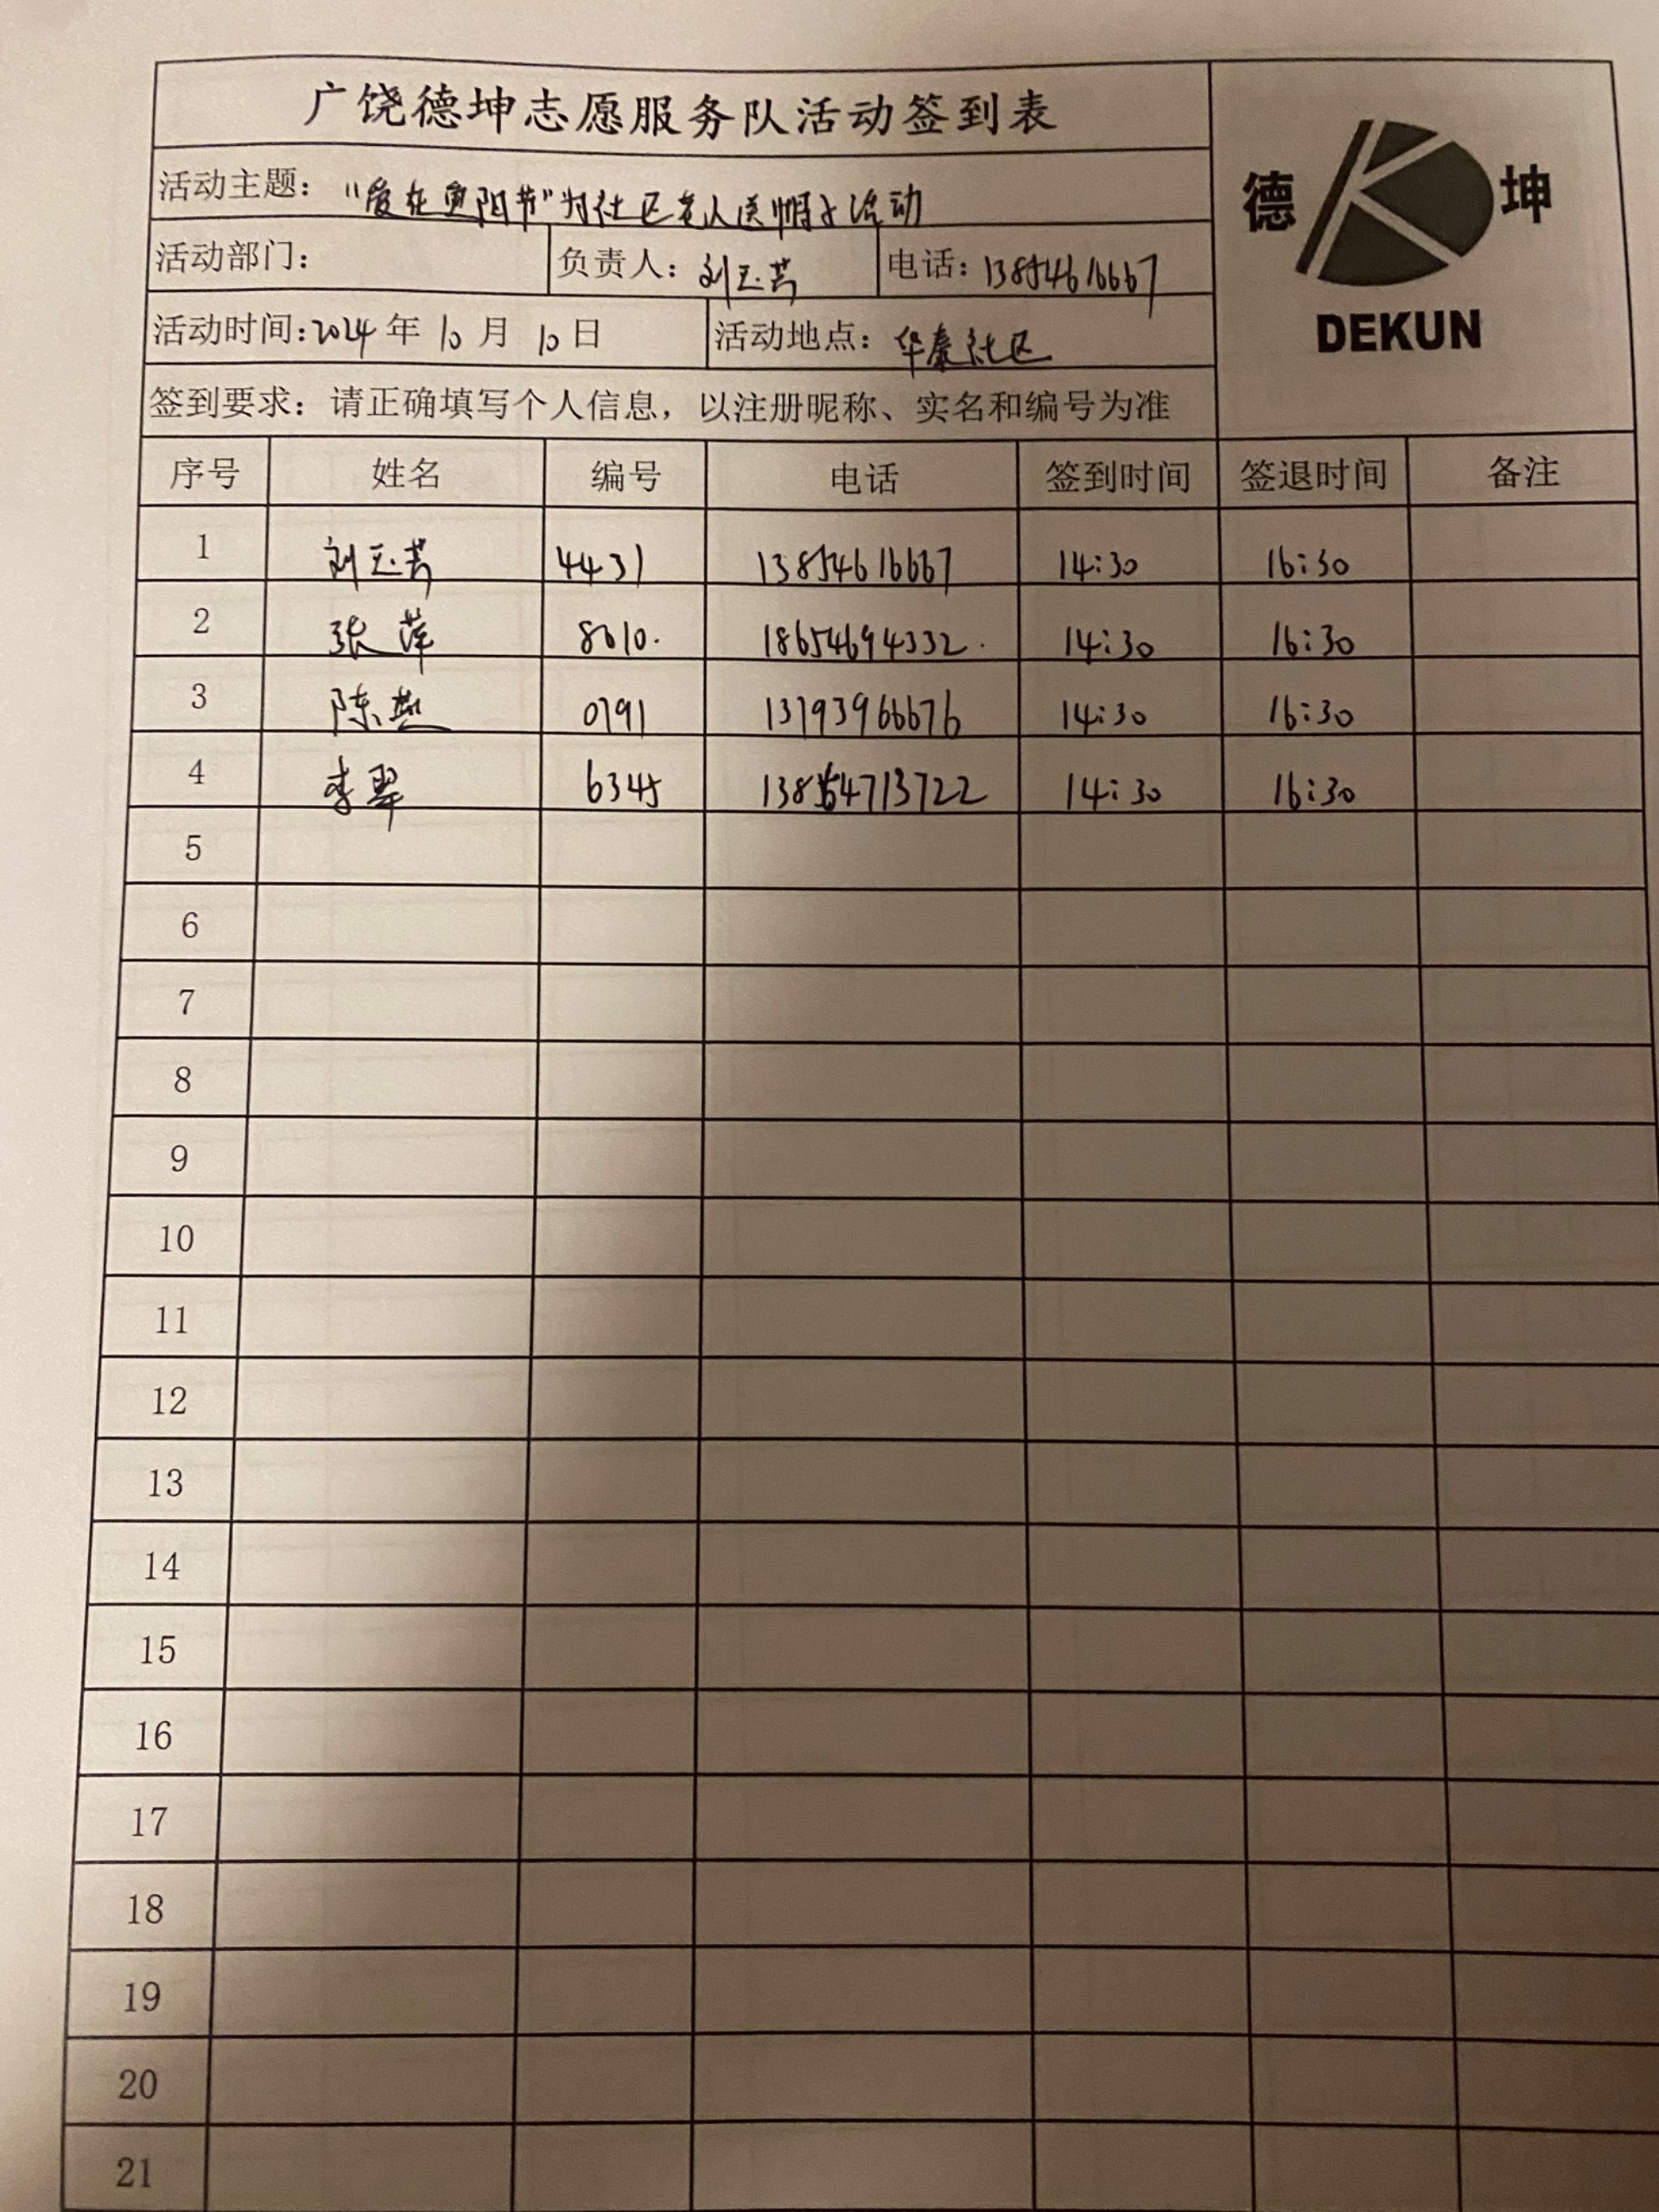 广饶德坤志愿服务队活动签到表
德 坤
DEKUN
活动主题：“爱在重阳节”为社区老人送帽子活动
活动部门： 负责人：刘玉芳 电话：13854616667
活动时间：2024年10月10日 活动地点：华泰社区
签到要求：请正确填写个人信息，以注册昵称、实名和编号为准
序号 姓名 编号 电话 签到时间 签退时间 备注
1 刘玉芳 4431 13854616667 14:30 16:30
2 张萍 8010. 18654694332. 14:30 16:30
3 陈燕 0791 13793966676 14:30 16:30
4 李翠 6345 13854713722 14:30 16:30
5
6
7
8
9
10
11
12
13
14
15
16
17
18
19
20
21